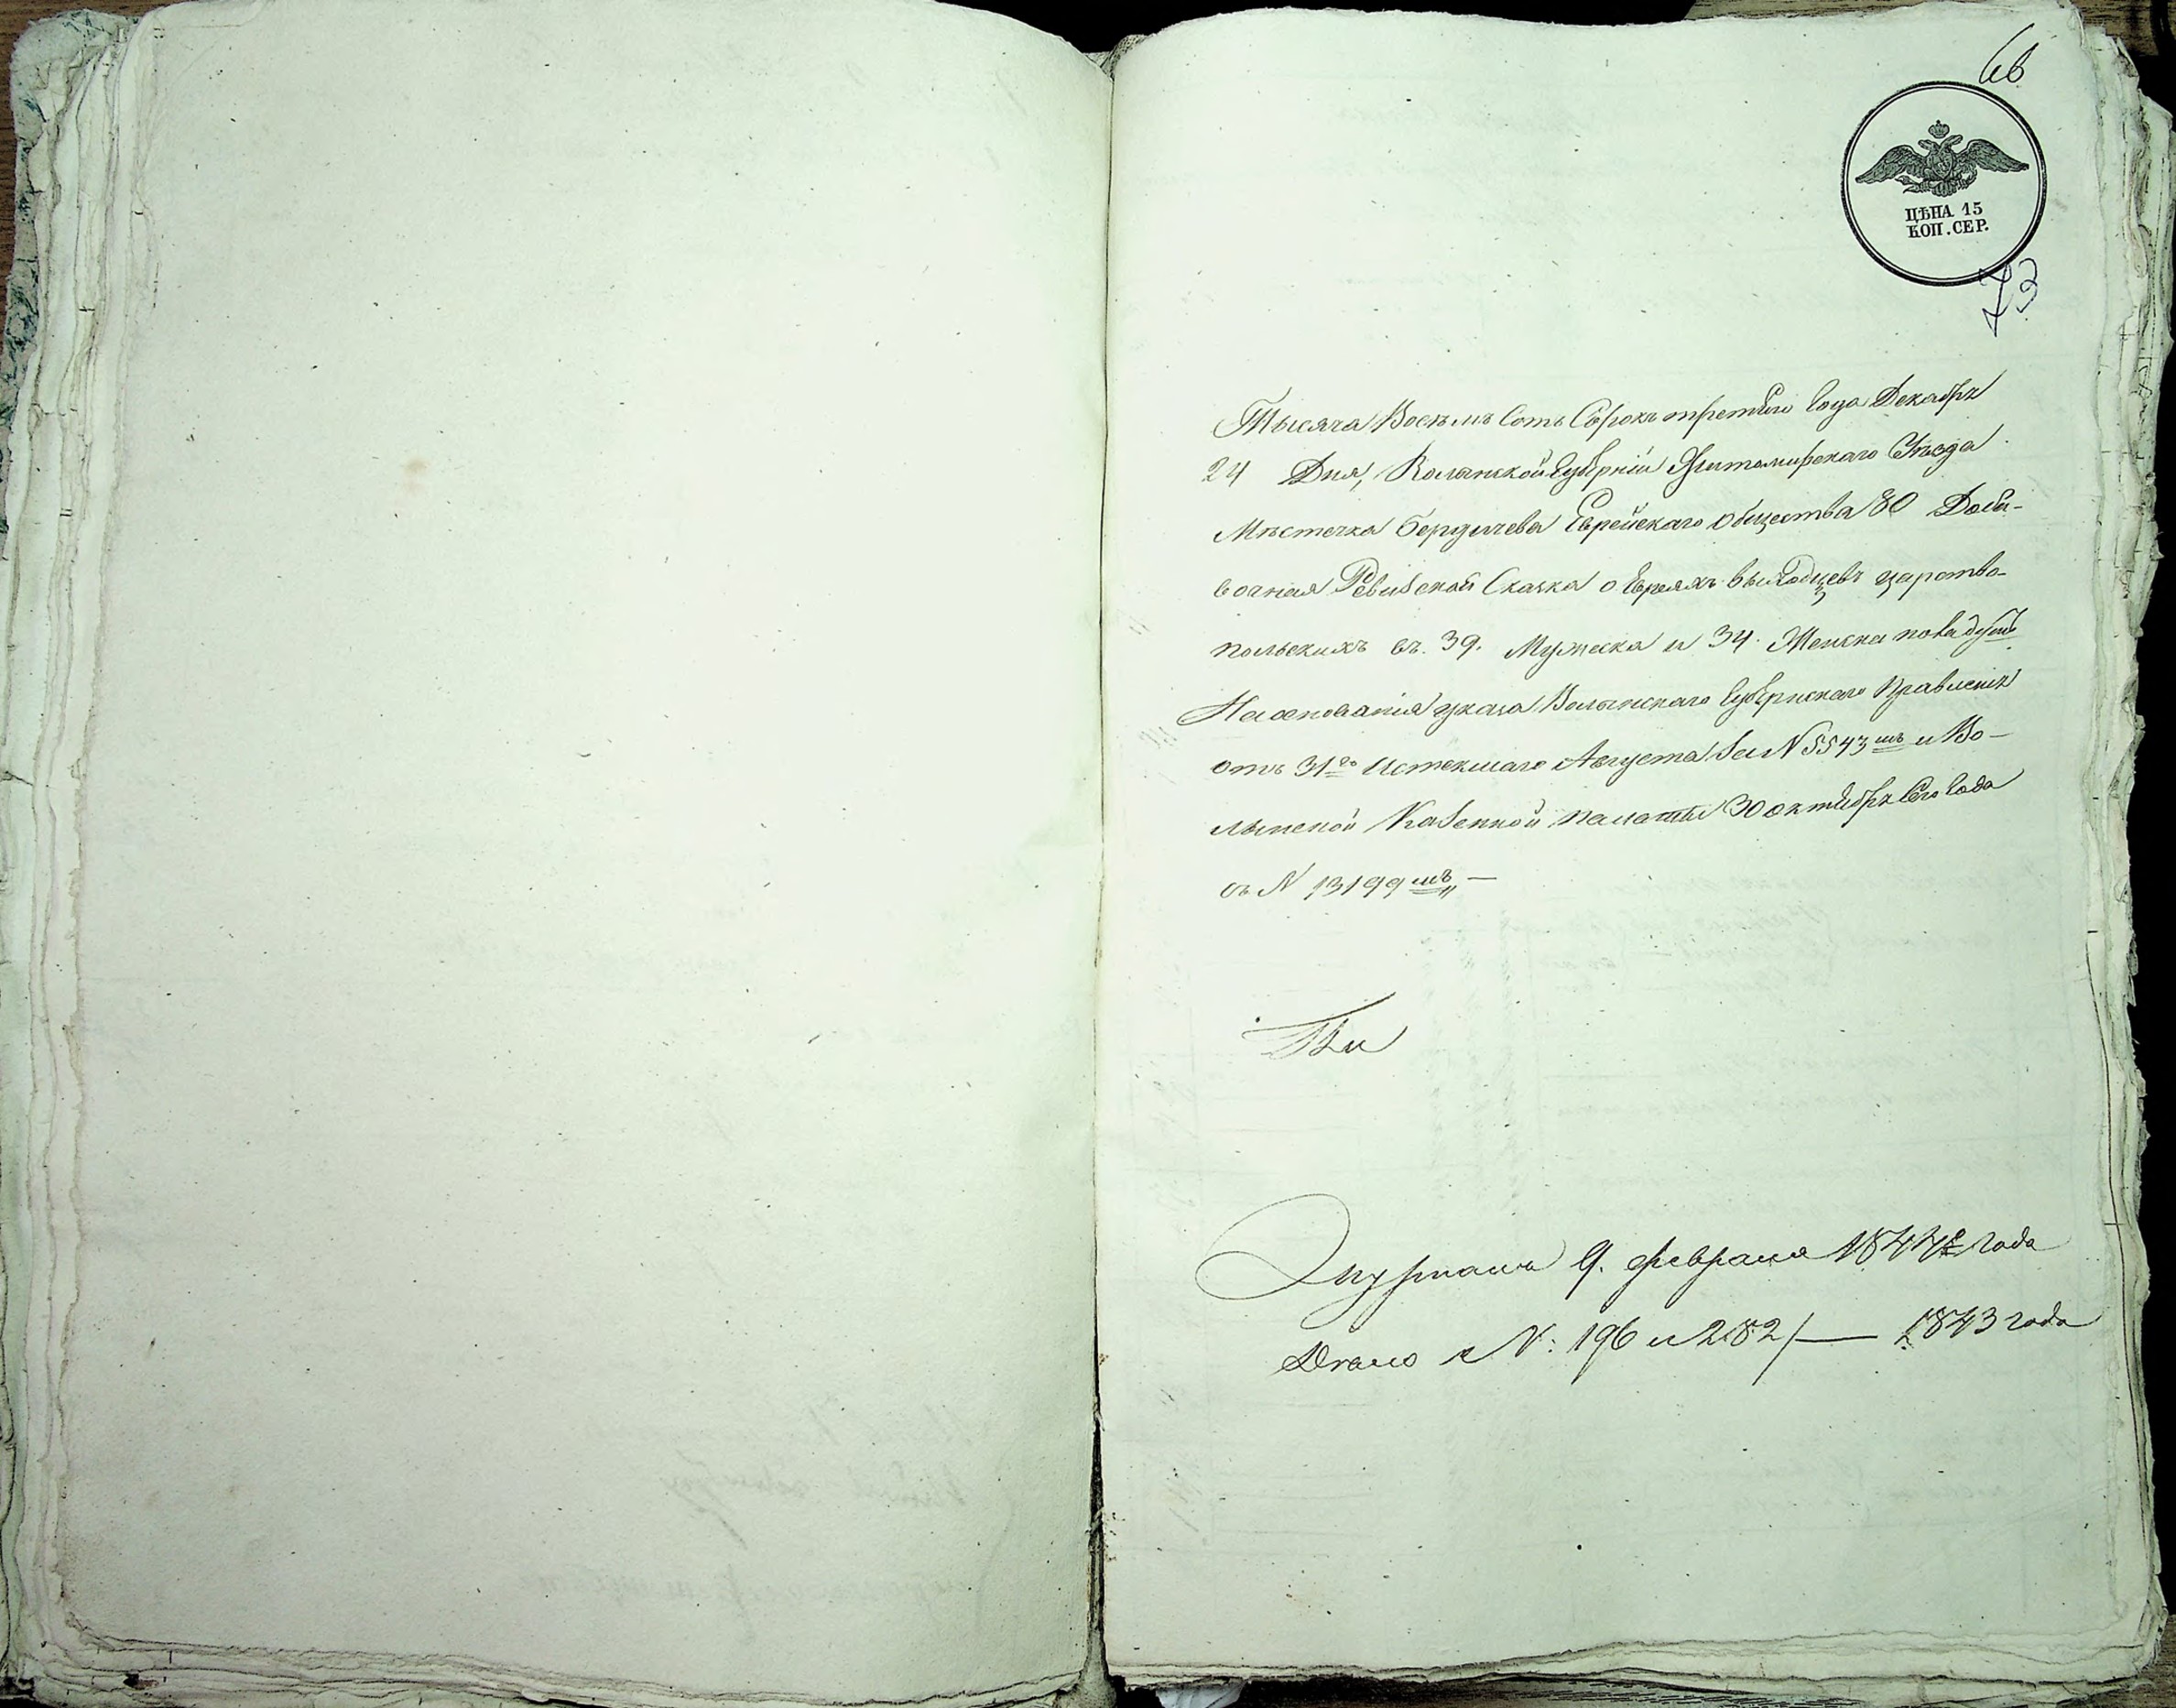 66
ЦѢНА 15
КОП. СЕР.
73
Тысяча Восемь Сотъ Сорокъ третьего Года Декабря
24 Дня, Волынской Губерніи Житомирскаго Уѣзда
Мѣстечка Бердичева Еврейскаго общества 80 Доба-
вочная Ревизская Сказка о Евреяхъ выходцевъ царства
польскихъ въ 39. Мужеска и 34. Женска пола душъ
На основаніи указа Волынскаго Губернскаго Правленія
отъ 31го Истекшаго Августа за N 5543мъ и Во-
лынской Казенной палаты 30 октября сего Года
за N 13199мъ —
9. февраля 1844го Года
Дѣло N: 196 и 282 / — 1843 года